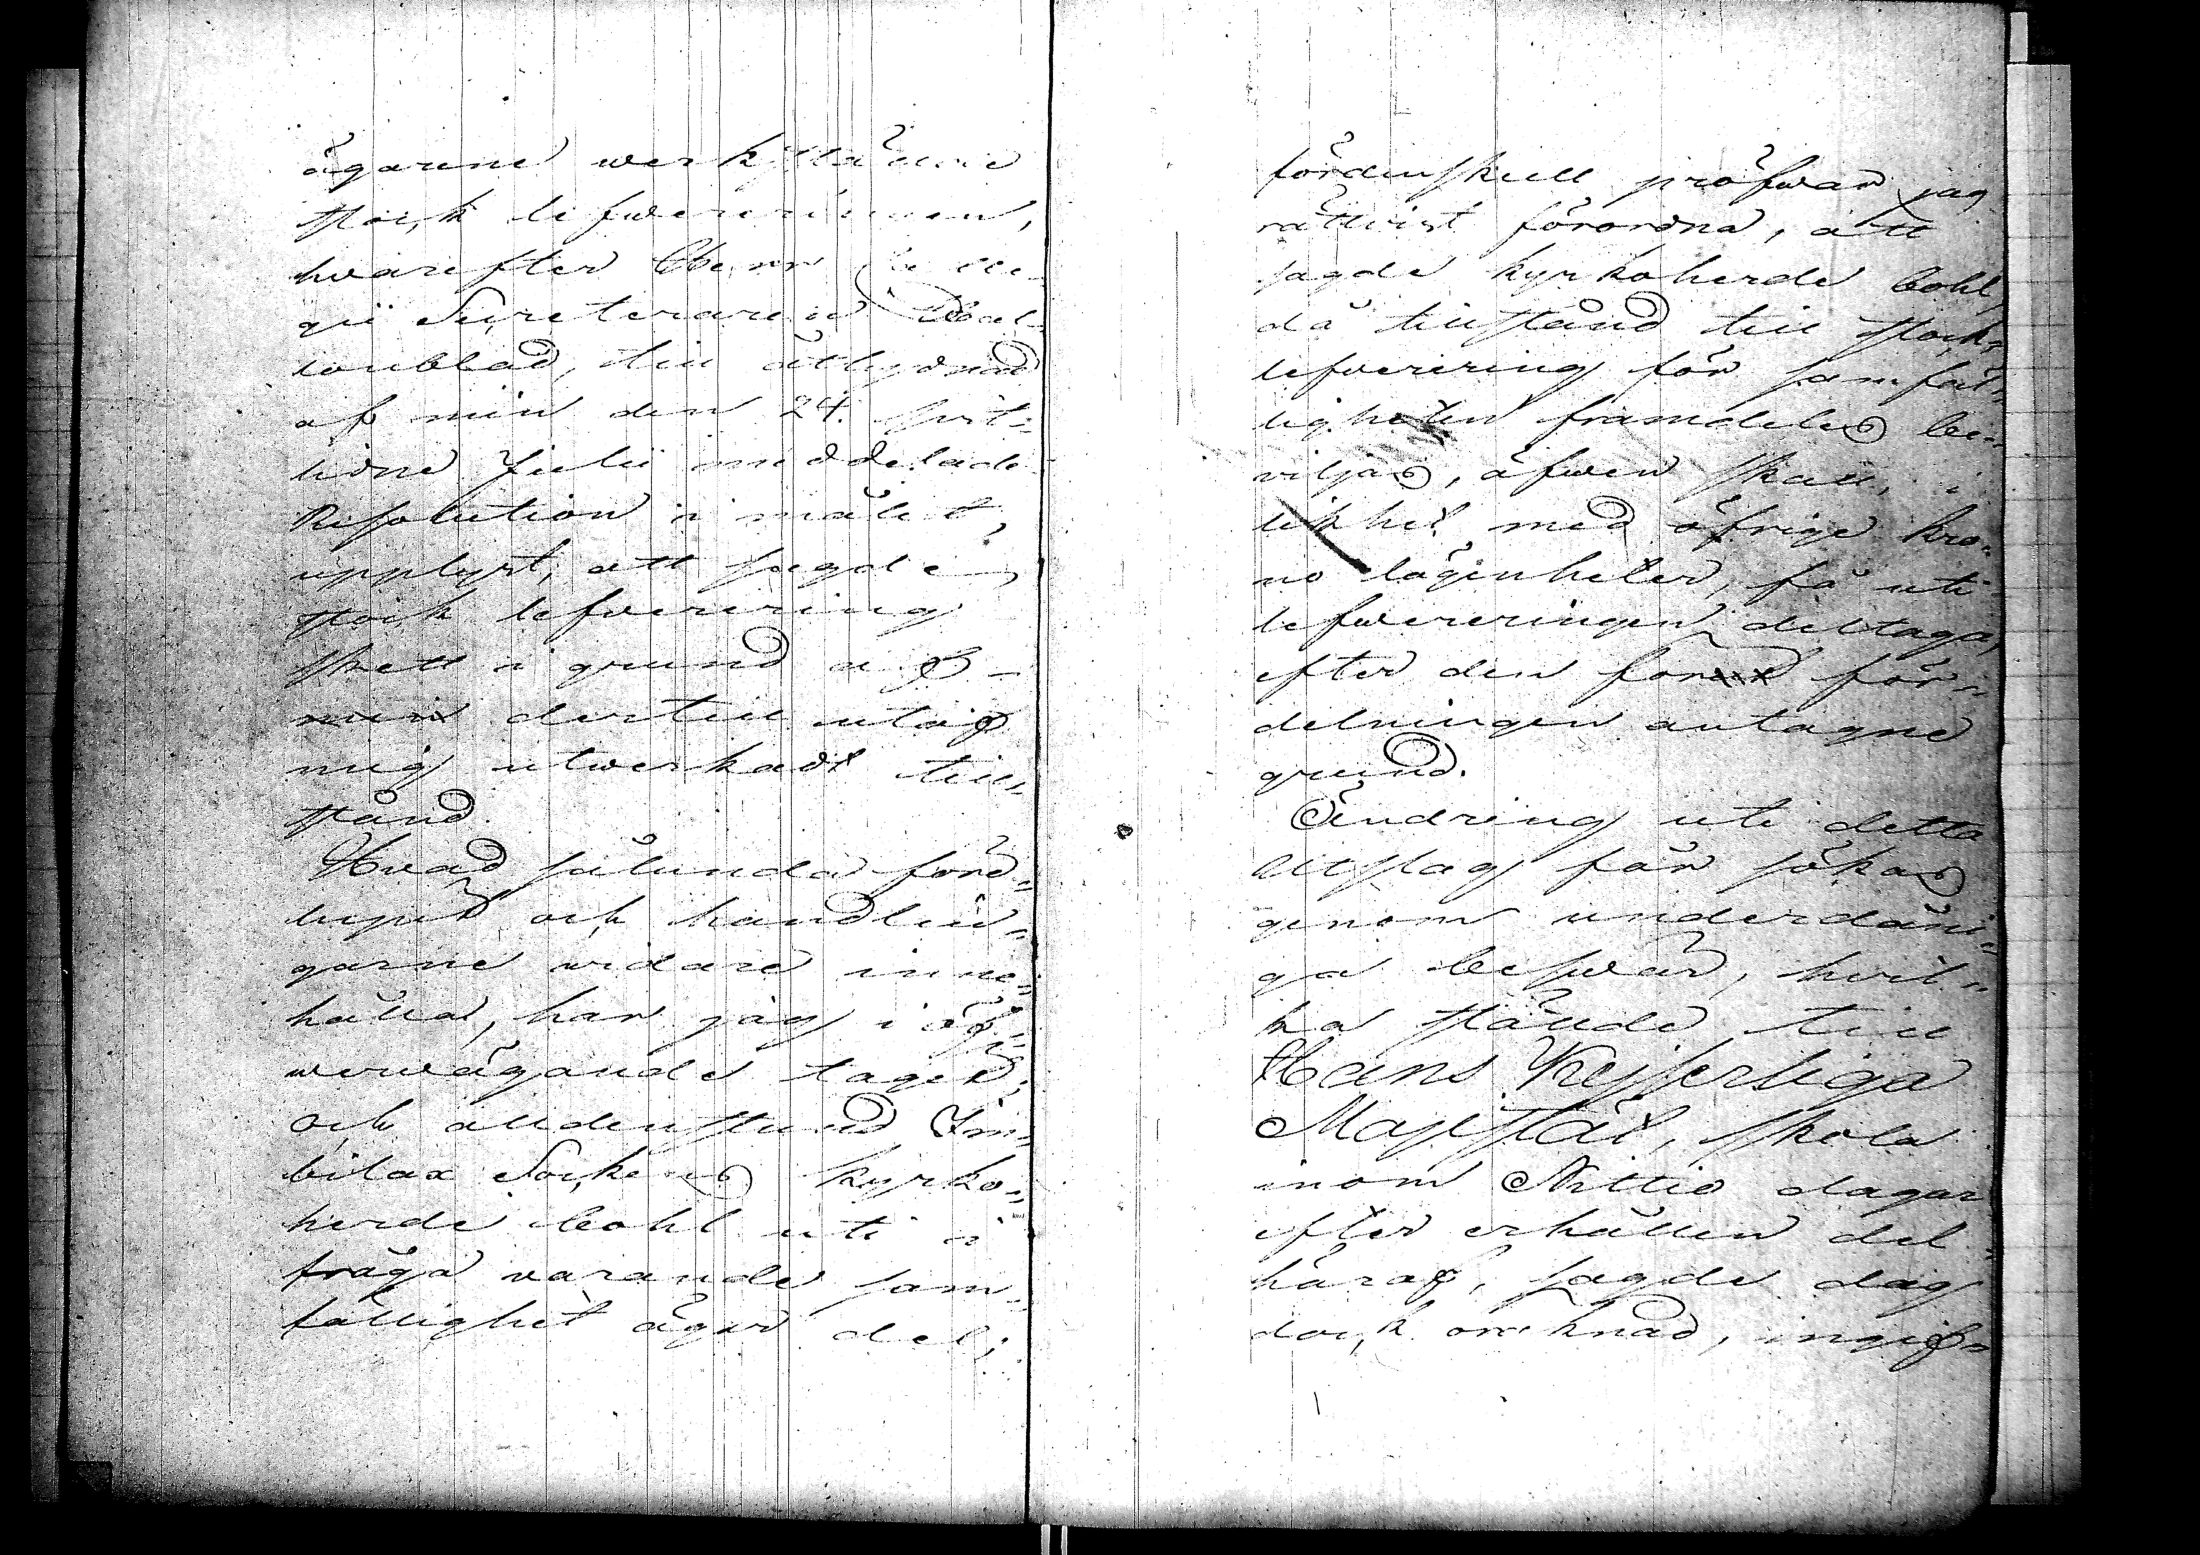 ägarene werkstäldte
stock lefwereringen,
hwarefter Herr Colle-
gii Secreteraren
conblad, till åtlydnad
af min den 24. sist=
lidne Julii meddelade
Resolution i målet,
upplyst, att sagde
stock lefwerering
skett i grund af
min dertill utaf
mig utwerkadt till=
stånd.
Hvad sålunda före=
lupit och handlin=
garne vidare inne=
hålla, har jag i öf=
werwägande tagit;
Och alldenstund Im=
bilax Sockens kyrko=
herde bohl uti i
fråga varande sam=
fällighet äger del;
fördenskull pröfwar jag
rättvist förordna, att
sagde kyrkoherde bohl,
då tillstånd till stock=
lefwerering för samfäl=
ligheten framdeles be=
viljas, äfwen skall, i
likhet med öfrige kro=
no lägenheter, få uti
lefwereringen deltaga,
efter den för för=
delningen antagne
grund.
Ändring uti detta
Utslag får sökas
genom underdåni=
ga beswär, hvil=
ka stälde till
Hans Kejserliga
Majestät, skola
inom Nittio dagar
efter erhållen del
häraf, sagde dag
dock oräknad, ingif=